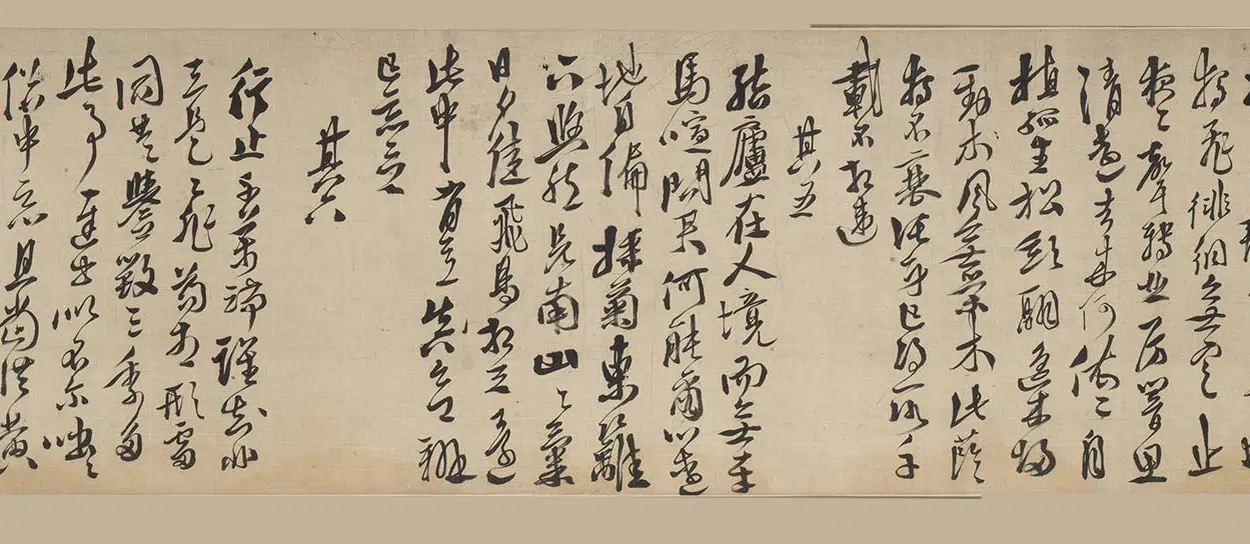 獨飛徘徊無定止
夜々聲轉悲厉響思
清遠去来何依々自
植孤生松歛翮遥来歸
勁風無榮木此蔭
獨不衰託身已得所千
載不相違
其五
結廬在人境而無車
馬喧問君何能爾心遠
地自偏採菊東籬
下悠然見南山々氣
日夕佳飛鳥相与還
此中有真意欲辯
已忘言
其六
行止千萬端誰知非
与是々非苟相形雷
同共譽毀三季多
此事達士似不爾咄々
俗中惡且當從黄